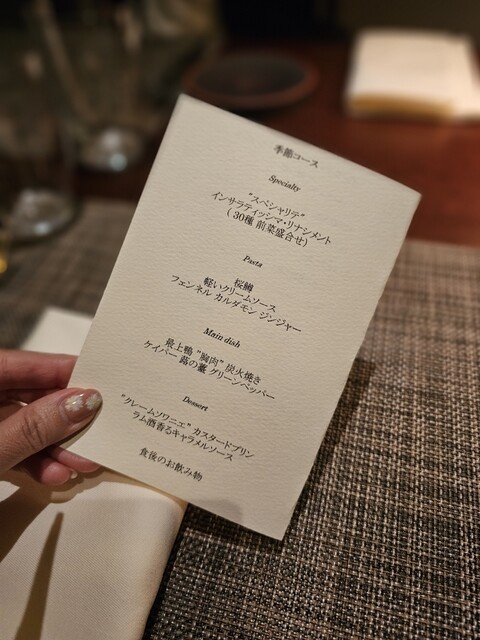 季節コース
Specialty
"スペシャリテ"
インサラティッシマ・リナシメント
( 30種 前菜盛合せ)
Pasta
桜鱒
軽いクリームソース
フェンネル カルダモン ジンジャー
Main dish
最上鴨 "胸肉" 炭火焼き
ケイパー 蕗の薹 グリーンペッパー
Dessert
"クレームソワニエ" カスタードプリン
ラム酒香るキャラメルソース
食後のお飲み物